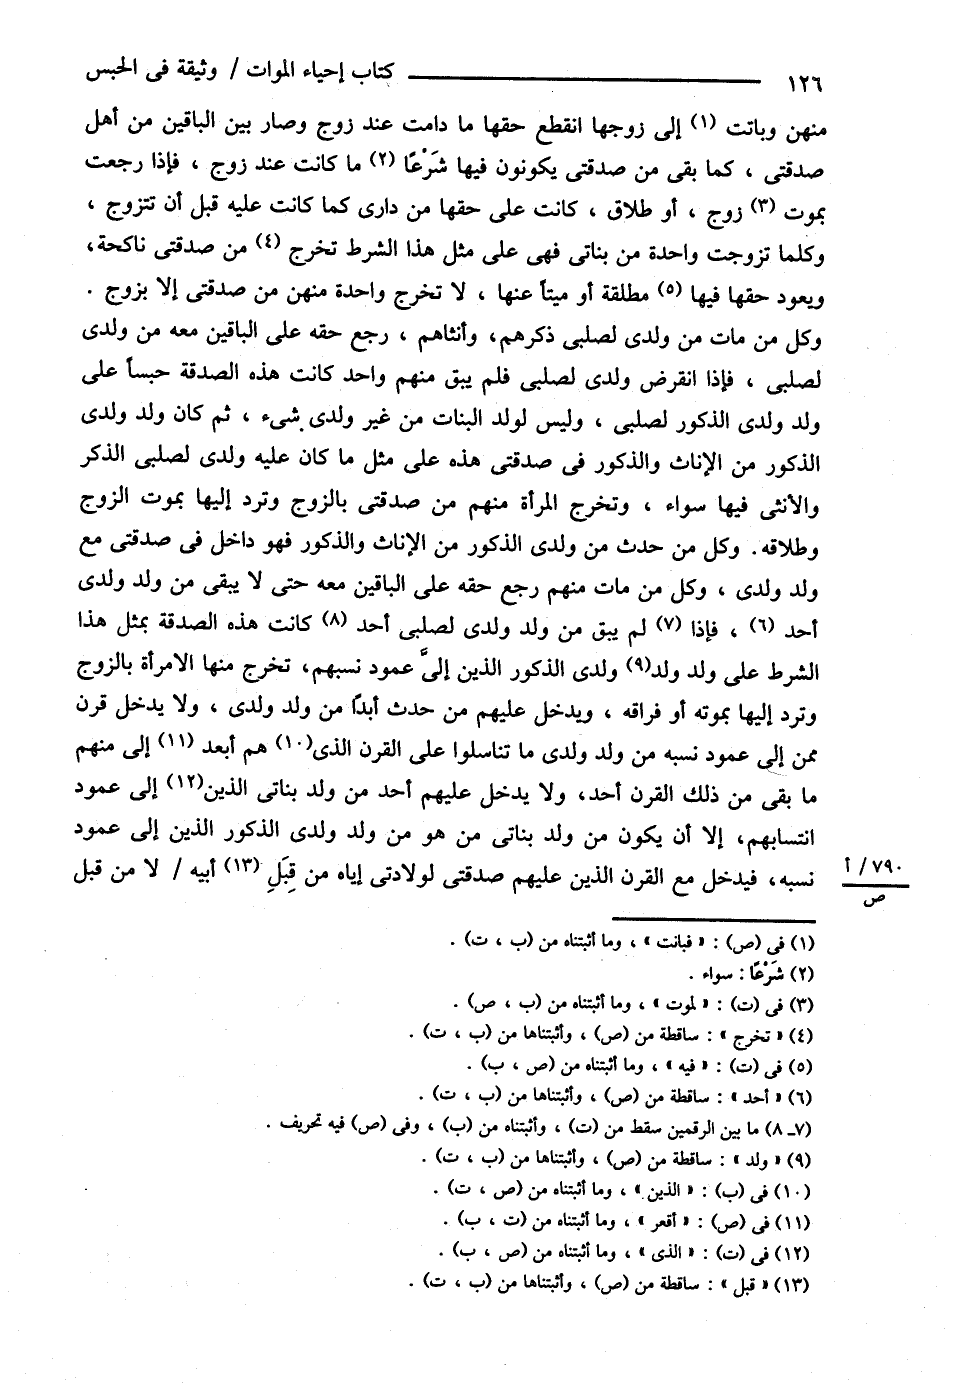 ١٢٦ كتاب إحياء الموات / وثيقة فى الحبس
منهن وباتت (١) إلى زوجها انقطع حقها ما دامت عند زوج وصار بين الباقين من أهل
صدقتى ، كما بقى من صدقتى يكونون فيها شَرْعًا (٢) ما كانت عند زوج ، فإذا رجعت
بموت (٣) زوج ، أو طلاق ، كانت على حقها من دارى كما كانت عليه قبل أن تتزوج ،
وكلما تزوجت واحدة من بناتى فهى على مثل هذا الشرط تخرج (٤) من صدقتى ناكحة،
ويعود حقها فيها (٥) مطلقة أو ميتاً عنها ، لا تخرج واحدة منهن من صدقتى إلا بزوج .
وكل من مات من ولدى لصلبى ذكرهم، وأنثاهم ، رجع حقه على الباقين معه من ولدى
لصلبى ، فإذا انقرض ولدى لصلبى فلم يبق منهم واحد كانت هذه الصدقة حبساً على
ولد ولدى الذكور لصلبى ، وليس لولد البنات من غير ولدى شىء ، ثم كان ولد ولدى
الذكور من الإناث والذكور فى صدقتى هذه على مثل ما كان عليه ولدى لصلبى الذكر
والأنثى فيها سواء ، وتخرج المرأة منهم من صدقتى بالزوج وترد إليها بموت الزوج
وطلاقه. وكل من حدث من ولدى الذكور من الإناث والذكور فهو داخل فى صدقتى مع
ولد ولدى ، وكل من مات منهم رجع حقه على الباقين معه حتى لا يبقى من ولد ولدى
أحد (٦) ، فإذا (٧) لم يبق من ولد ولدى لصلبى أحد (٨) كانت هذه الصدقة بمثل هذا
الشرط على ولد ولد(٩) ولدى الذكور الذين إلىَّ عمود نسبهم، تخرج منها الامرأة بالزوج
وترد إليها بموته أو فراقه ، ويدخل عليهم من حدث أبدًا من ولد ولدى ، ولا يدخل قرن
ممن إلى عمود نسبه من ولد ولدى ما تناسلوا على القرن الذى(١٠) هم أبعد (١١) إلى منهم
ما بقى من ذلك القرن أحد، ولا يدخل عليهم أحد من ولد بناتى الذين(١٢) إلى عمود
انتسابهم، إلا أن يكون من ولد بناتى من هو من ولد ولدى الذكور الذين إلى عمود
نسبه، فيدخل مع القرن الذين عليهم صدقتى لولادتى إياه من قِبَلِ (١٣) أبيه / لا من قبل
٧٩٠ / أ
ص
(١) فى (ص) : « فبانت » ، وما أثبتناه من (ب ، ت) .
(٢) شَرْعًا : سواء .
(٣) فى (ت) : « لموت » ، وما أثبتناه من (ب ، ص) .
(٤) « تخرج » : ساقطة من (ص) ، وأثبتناها من (ب ، ت) .
(٥) فى (ت) : « فيه » ، وما أثبتناه من (ص ، ب) .
(٦) « أحد » : ساقطة من (ص) ، وأثبتناها من (ب ، ت) .
(٧ـ ٨) ما بين الرقمين سقط من (ت) ، وأثبتناه من (ب) ، وفى (ص) فيه تحريف .
(٩) « ولد » : ساقطة من (ص) ، وأثبتناها من (ب ، ت) .
(١٠) فى (ب) : « الذين » ، وما أثبتناه من (ص ، ت) .
(١١) فى (ص) : « أقعر » ، وما أثبتناه من (ت ، ب) .
(١٢) فى (ت) : « الذى » ، وما أثبتناه من (ص ، ب) .
(١٣) « قبل » : ساقطة من (ص) ، وأثبتناها من (ب ، ت) .